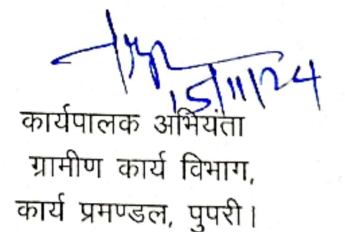 15/11/24
कार्यपालक अभियंता
ग्रामीण कार्य विभाग,
कार्य प्रमण्डल, पुपरी।